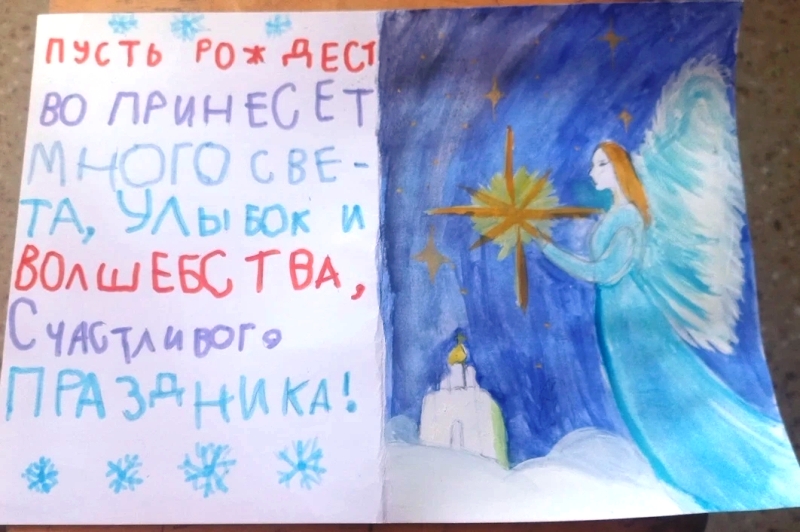 ПУСТЬ РОЖДЕСТ
ВО ПРИНЕСЕТ
МНОГО СВЕ-
ТА, УЛЫБОК И
ВОЛШЕБСТВА,
СЧАСТЛИВОГО
ПРАЗДНИКА!